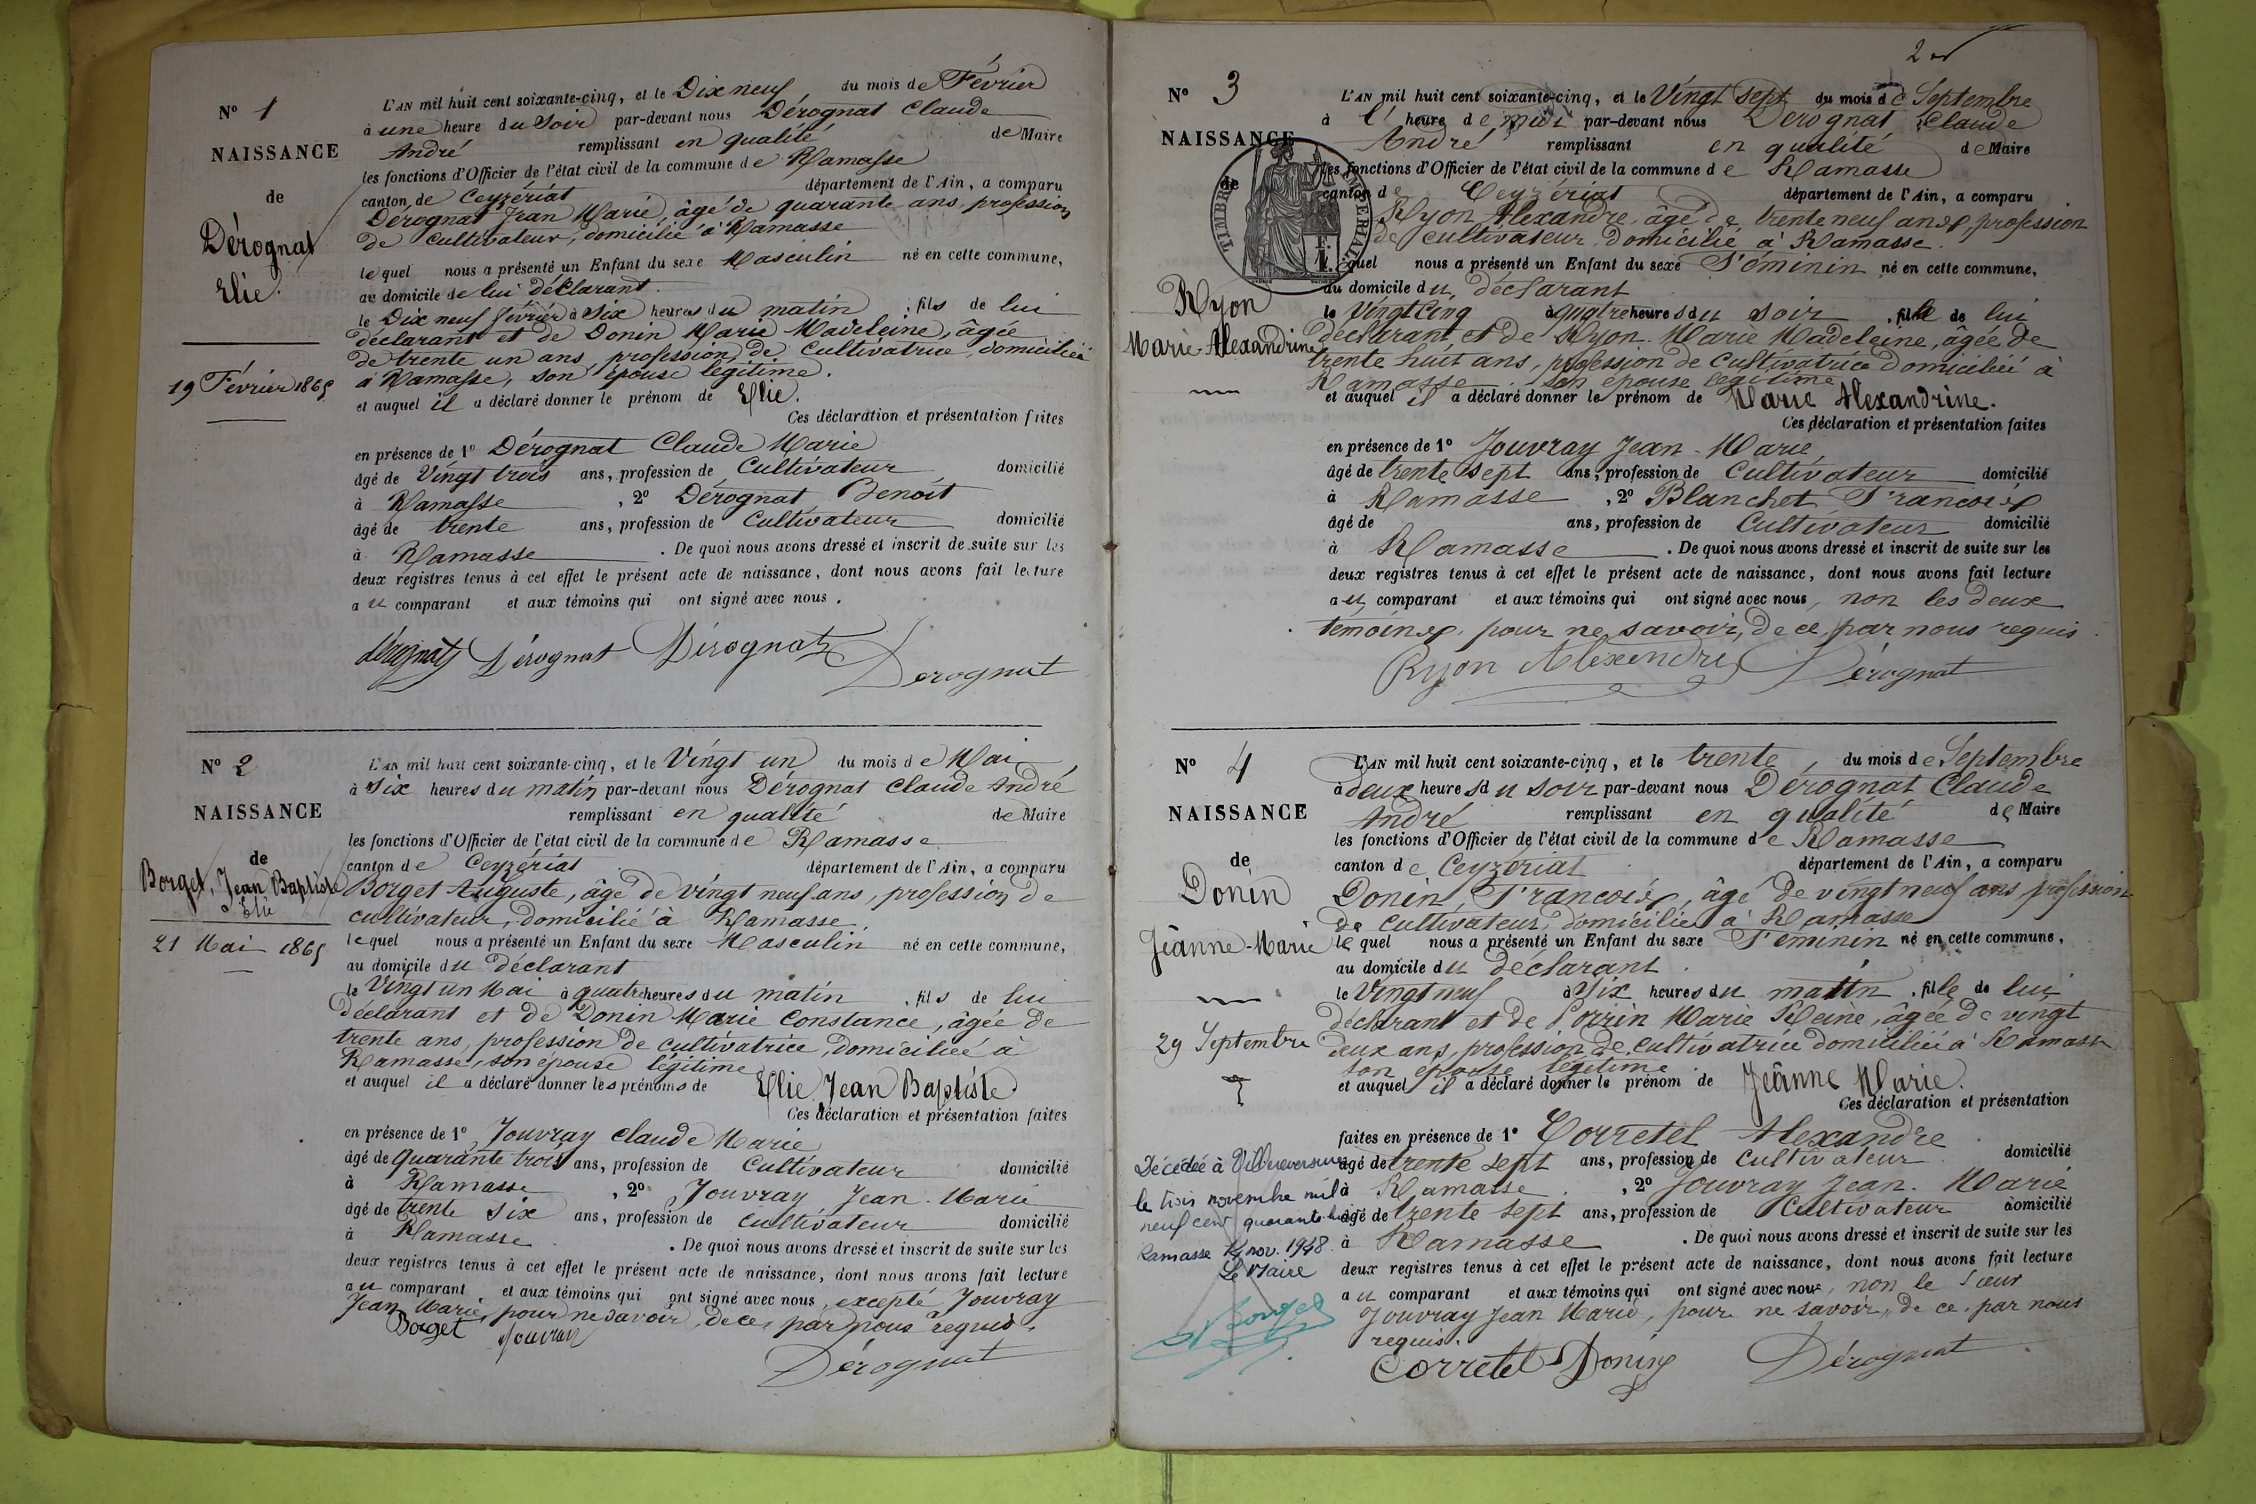 N° 1
NAISSANCE
de
Dérognat
Elie.
19 Février 1865
L'AN mil huit cent soixante-cinq, et le Dix neuf du mois de Février
à une heure du Soir par-devant nous Dérognat Claude
André remplissant en qualité de Maire
les fonctions d'Officier de l'état civil de la commune de Ramasse
canton de Ceyzériat département de l'Ain, a comparu
Dérognat Jean Marie, âgé de quarante ans, profession
de cultivateur, domicilié à Ramasse
lequel nous a présenté un Enfant du sexe Masculin né en cette commune,
au domicile de lui déclarant.
le Dix neuf février à Six heures du matin, fils de lui
déclarant et de Donin Marie Madeleine, âgée
de trente un ans, profession de Cultivatrice, domiciliée
à Ramasse, son épouse légitime.
et auquel il a déclaré donner le prénom de Elie.
Ces déclaration et présentation faites
en présence de 1° Dérognat Claude Marie
âgé de Vingt trois ans, profession de Cultivateur domicilié
à Ramasse, 2° Dérognat Benoit
âgé de trente ans, profession de Cultivateur domicilié
à Ramasse. De quoi nous avons dressé et inscrit de suite sur les
deux registres tenus à cet effet le présent acte de naissance, dont nous avons fait lecture
au comparant et aux témoins qui ont signé avec nous.
dérognat Dérognat Dérognat
Dérognat
N° 2
NAISSANCE
de
Borget, Jean Baptiste
Elie
21 Mai 1865
L'AN mil huit cent soixante-cinq, et le Vingt un du mois de Mai
à Six heures du matin par-devant nous Dérognat Claude André
remplissant en qualité de Maire
les fonctions d'Officier de l'état civil de la commune de Ramasse
canton de Ceyzériat département de l'Ain, a comparu
Borget Auguste, âgé de vingt neuf ans, profession de
cultivateur, domicilié à Ramasse,
lequel nous a présenté un Enfant du sexe Masculin né en cette commune,
au domicile du déclarant
le Vingt un Mai à quatre heures du matin, fils de lui
déclarant et de Donin Marie Constance, âgée de
trente ans, profession de cultivatrice, domiciliée à
Ramasse, son épouse légitime
et auquel il a déclaré donner les prénoms de Elie Jean Baptiste
Ces déclaration et présentation faites
en présence de 1° Jouvray Claude Marie
âgé de Quarante trois ans, profession de Cultivateur domicilié
à Ramasse, 2° Jouvray Jean-Marie
âgé de trente six ans, profession de cultivateur domicilié
à Ramasse. De quoi nous avons dressé et inscrit de suite sur les
deux registres tenus à cet effet le présent acte de naissance, dont nous avons fait lecture
au comparant et aux témoins qui ont signé avec nous, excepté Jouvray
Jean Marie, pour ne savoir, de ce, par nous requis.
Borget Jouvray
Dérognat
2
N° 3
NAISSANCE
de
TIMBRE IMPÉRIAL
Ryon
Marie-Alexandrine
L'AN mil huit cent soixante-cinq, et le Vingt sept du mois de Septembre
à l' heure de midi par-devant nous Dérognat Claude
André remplissant en qualité de Maire
les fonctions d'Officier de l'état civil de la commune de Ramasse
canton de Ceyzériat département de l'Ain, a comparu
Ryon Alexandre, âgé de trente neuf ans, profession
de cultivateur, domicilié à Ramasse.
lequel nous a présenté un Enfant du sexe Féminin né en cette commune,
au domicile du déclarant
le Vingt Cinq à quatre heures du soir, fille de lui
déclarant et de Ryon Marie Madeleine, âgée de
trente huit ans, profession de cultivatrice domiciliée à
Ramasse. son épouse légitime
et auquel il a déclaré donner le prénom de Marie Alexandrine.
Ces déclaration et présentation faites
en présence de 1° Jouvray Jean-Marie
âgé de trente sept ans, profession de Cultivateur domicilié
à Ramasse, 2° Blanchet François
âgé de ans, profession de Cultivateur domicilié
à Ramasse. De quoi nous avons dressé et inscrit de suite sur les
deux registres tenus à cet effet le présent acte de naissance, dont nous avons fait lecture
au comparant et aux témoins qui ont signé avec nous, non les deux
témoins, pour ne savoir, de ce, par nous requis.
Ryon Alexendre Dérognat
N° 4
NAISSANCE
de
Donin
Jeânne-Marie
29 Septembre
Décédée à Villereversure
le trois novembre mil
neuf cent quarante-huit
Ramasse 14 nov. 1948.
Le Maire
Borget
L'AN mil huit cent soixante-cinq, et le trente, du mois de Septembre
à deux heures du soir par-devant nous Dérognat Claude
André remplissant en qualité de Maire
les fonctions d'Officier de l'état civil de la commune de Ramasse
canton de Ceyzériat département de l'Ain, a comparu
Donin, François, âgé de vingt neuf ans, profession
de cultivateur, domicilié à Ramasse
lequel nous a présenté un Enfant du sexe Féminin né en cette commune,
au domicile du déclarant.
le Vingt neuf à Six heures du matin, fille de lui
déclarant et de Perrin Marie Reine, âgée de vingt
deux ans, profession de cultivatrice domiciliée à Ramasse
son épouse légitime.
et auquel il a déclaré donner le prénom de Jeânne Marie.
Ces déclaration et présentation
faites en présence de 1° Corretel Alexandre
âgé de trente sept ans, profession de cultivateur domicilié
à Ramasse, 2° Jouvray Jean-Marie
âgé de trente sept ans, profession de Cultivateur domicilié
à Ramasse. De quoi nous avons dressé et inscrit de suite sur les
deux registres tenus à cet effet le présent acte de naissance, dont nous avons fait lecture
au comparant et aux témoins qui ont signé avec nous, non le Sieur
Jouvray Jean Marie, pour ne savoir, de ce, par nous
requis.
Corretel Donin Dérognat